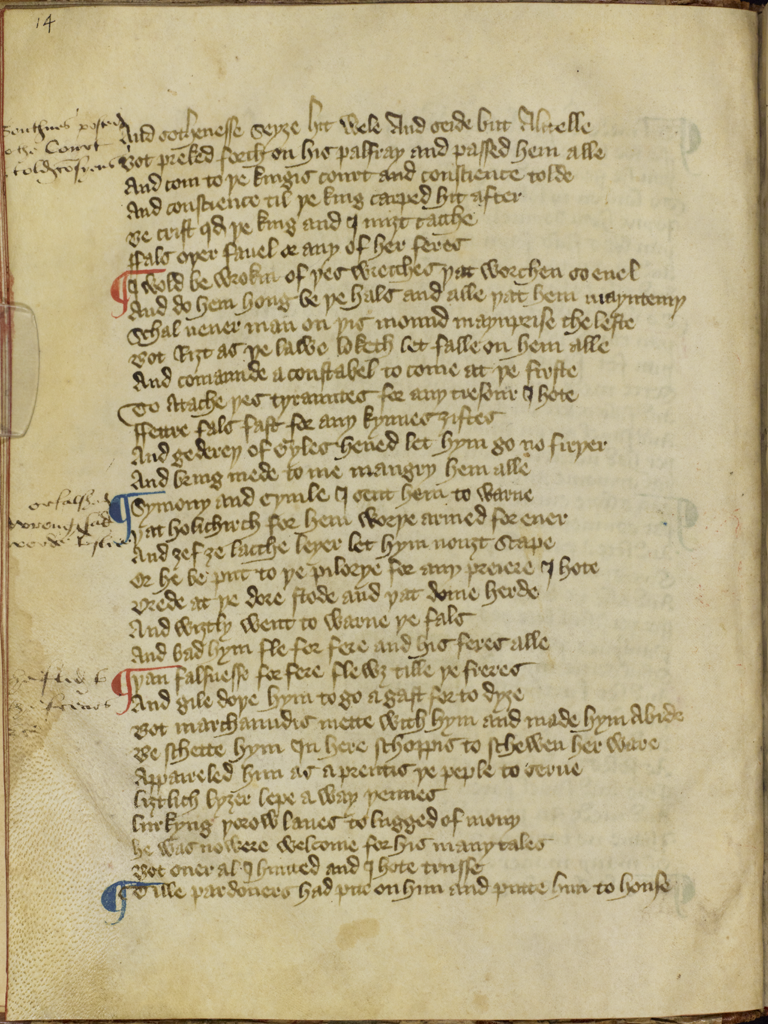 14
And sothenesse seyze hit wele And seide but A litelle
Bot preked forth on his palfray and passed hem alle
And com to þe kingis court and conscience tolde
And conscience til þe king carped hit after
Be crist qd þe king and I miȝt cacche
ffals oþer fauel or any of her feres
I wold be wrokin of þes wrecches þat worchen so euel
And do hem hong be þe hals and alle þat hem mayntenyn
Schal neuer man on þis mound maynprise the leste
Bot Riȝt as þe lawe loketh let falle on hem alle
And comaunde a constabel to come at þe firste
To Atache þes tyrauntes for any tresour I hote
ffettre fals fast for any kynnes ȝiftes
And gederey of gyles heued let hym go no firþer
And bring mede to me maugry hem alle
Symony and cyuile I sent hem to warne
Þat holichirch for hem worþe armed for euer
And ȝef ȝe lacche leyer let hym nouȝt scape
Or he be put to þe pilorye for any preiere I hote
Drede at þe dore stode and þat dome herde
And wiȝtly went to warne þe fals
And bad hym fle for fere and his feres alle
Þan falsnesse for fere flewȝ tille þe freres
And gile doþe hym to go agast for to dyȝe
Bot marchaundis mette with hym and made hym Abide
Be schette hym In here schoppis to schewen her ware
Appaireled him as a prentis þe peple to serue
liȝtlich lyȝer lepe a way þennes
lurkyng þorow lanes to lugged of mony
he was nowere welcome for his many tales
Bot ouer al I huned and I hote trusse
Tille pardoners had pite on him and putte him to house